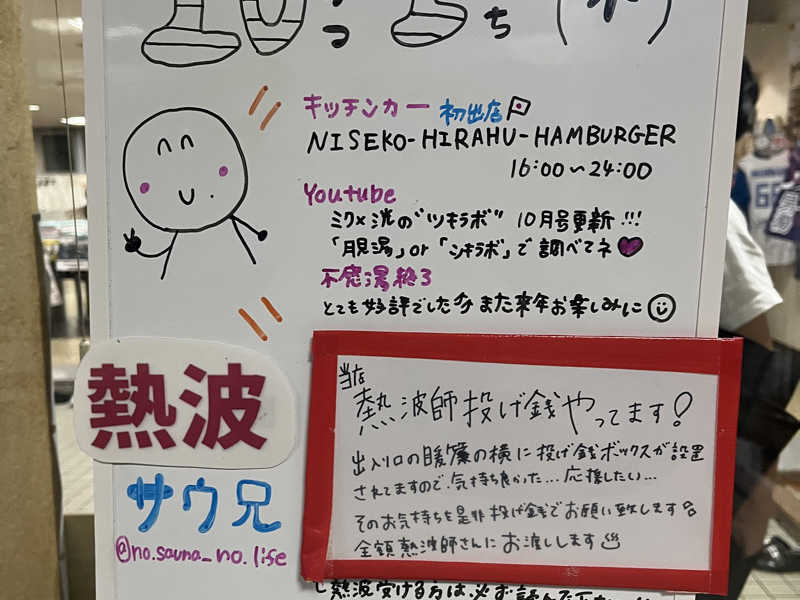 キッチンカー 初出店
NISEKO-HIRAHU-HAMBURGER
16:00~24:00
Youtube
ミク×洸の"ツキラボ" 10月号更新!!!
「月見湯」or「ツキラボ」で調べてネ
不感湯終了
とても好評でした また来年お楽しみに
熱波
サウ兄
@no.sauna_no.life
当店
熱波師投げ銭やってます!
出入り口の暖簾の横に投げ銭ボックスが設置
されてますので、気持ち良かった...応援したい...
そのお気持ちを是非投げ銭でお願い致します
全額熱波師さんにお渡しします
熱波受ける方は必ず読んで下さい